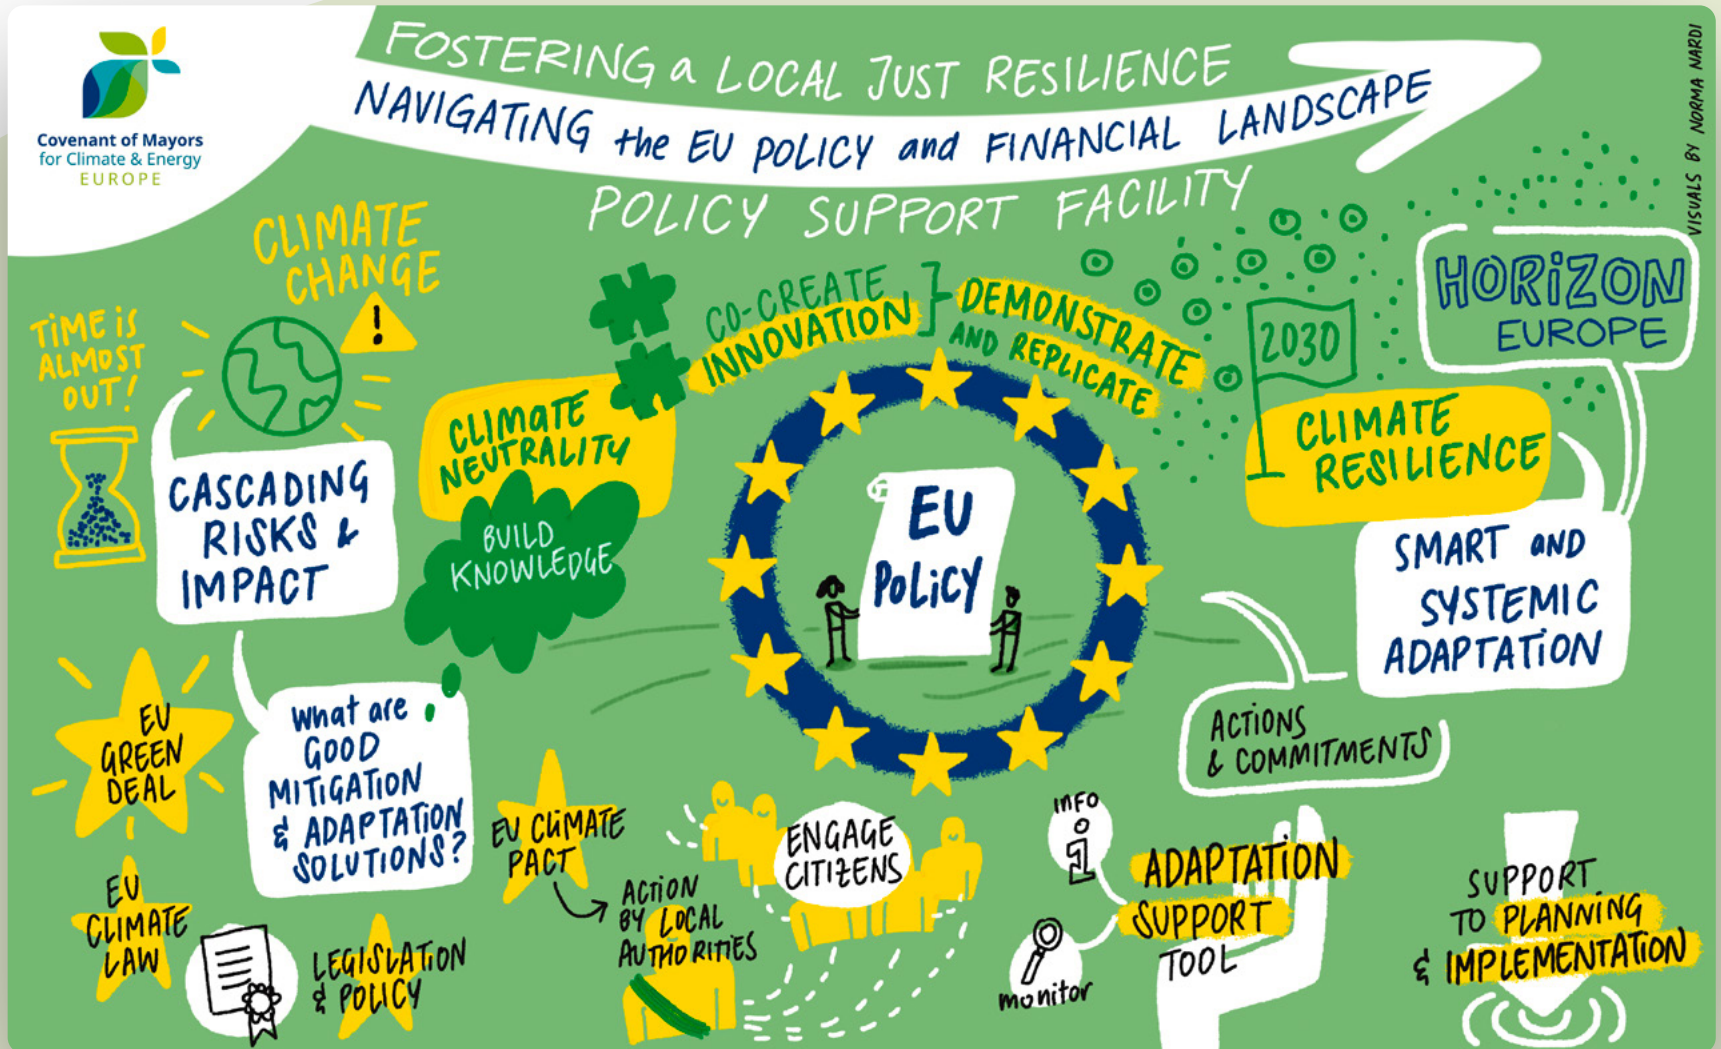 Covenant of Mayors
for Climate & Energy
EUROPE
FOSTERING a LOCAL JUST RESILIENCE
NAVIGATING the EU POLICY and FINANCIAL LANDSCAPE
POLICY SUPPORT FACILITY
VISUALS BY NORMA NARDI
CLIMATE
CHANGE
!
TIME is
ALMOST
OUT!
CASCADING
RISKS &
IMPACT
CLIMATE
NEUTRALITY
BUILD
KNOWLEDGE
CO-CREATE
INNOVATION
DEMONSTRATE
AND REPLICATE
2030
HORIZON
EUROPE
CLIMATE
RESILIENCE
SMART AND
SYSTEMIC
ADAPTATION
EU
POLICY
ACTIONS
& COMMITMENTS
EU
GREEN
DEAL
What are
GOOD
MITIGATION
& ADAPTATION
SOLUTIONS?
EU
CLIMATE
LAW
LEGISLATION
& POLICY
EU CLIMATE
PACT
ACTION
BY LOCAL
AUTHORITIES
ENGAGE
CITIZENS
INFO
i
monitor
ADAPTATION
SUPPORT
TOOL
SUPPORT
TO PLANNING
& IMPLEMENTATION